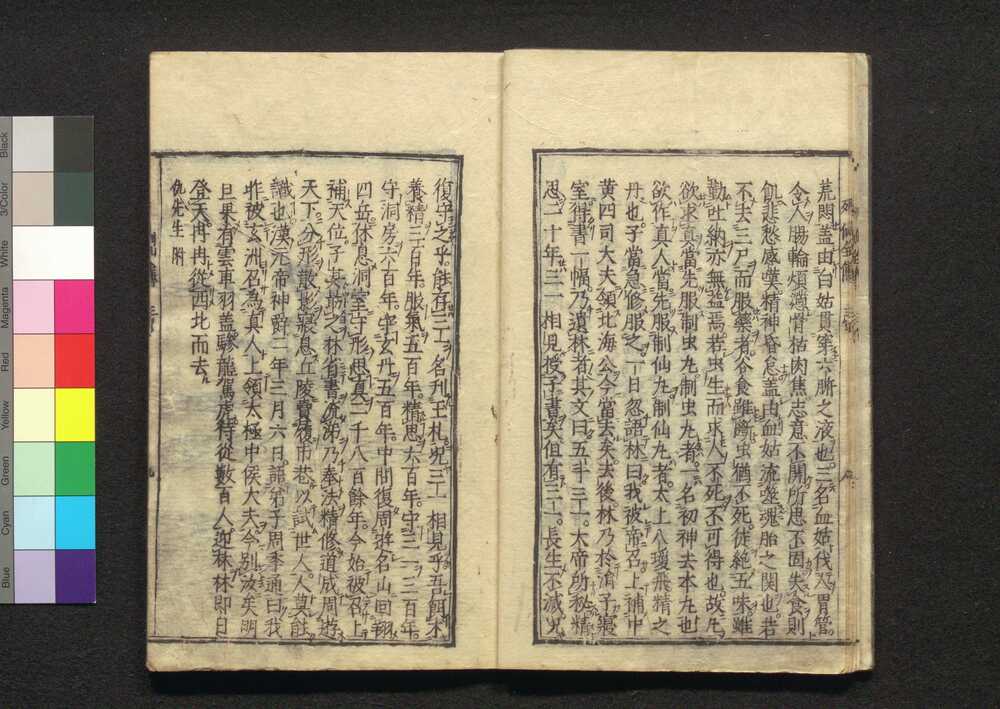 荒悶盖由白姑貫穿六腑之液也三名血姑伐人胃管
令人腸輪煩滿骨枯肉焦志意不開所思不固失食則
飢悲愁感嘆精神昏怠盖由血姑流噬魂胎之関也若
不去三尸而服藥者食雖断虫猶不死徒絶五味雖
勤吐納亦無益焉若虫生而求人不死不可得也故凡
欲求真當先服制虫丸制虫丸者一名初神去本丸也
欲作真人當先服制仙丸制仙丸者太上八瓊飛精之
丹也子當急修服之一日忽語林曰我被帝召上補中
黄四司大夫領北海公今當去矣去後林乃於涓子寢
室得書一幅乃遺林者其文曰五斗三一大帝所秘精
思二十年三一相見授子書矣但有三一長生不滅况
復守之乎能存三一名刋玉札况三一相見乎吾餌术
養精三百年服氣五百年精思六百年守三一三百年
守洞房六百年守玄丹五百年中間復周遊名山回翔
四岳休息洞室守形思真二千八百餘年今始被召上
補天位子其勗之林省書流涕乃奉法精修道成周遊
天下分形散影寢息丘陵賣履市巷以試世人人莫能
識也漢元帝神爵二年三月六日語弟子周季通曰我
昨被玄洲召為真人上領太極中侯大夫今別汝矣明
旦果有雲車羽盖驂龍駕虎侍從數百人迎林林即日
登天冉冉從西北而去
仇先生 附
Black
3/Color
White
Magenta
Red
Yellow
Green
Cyan
Blue